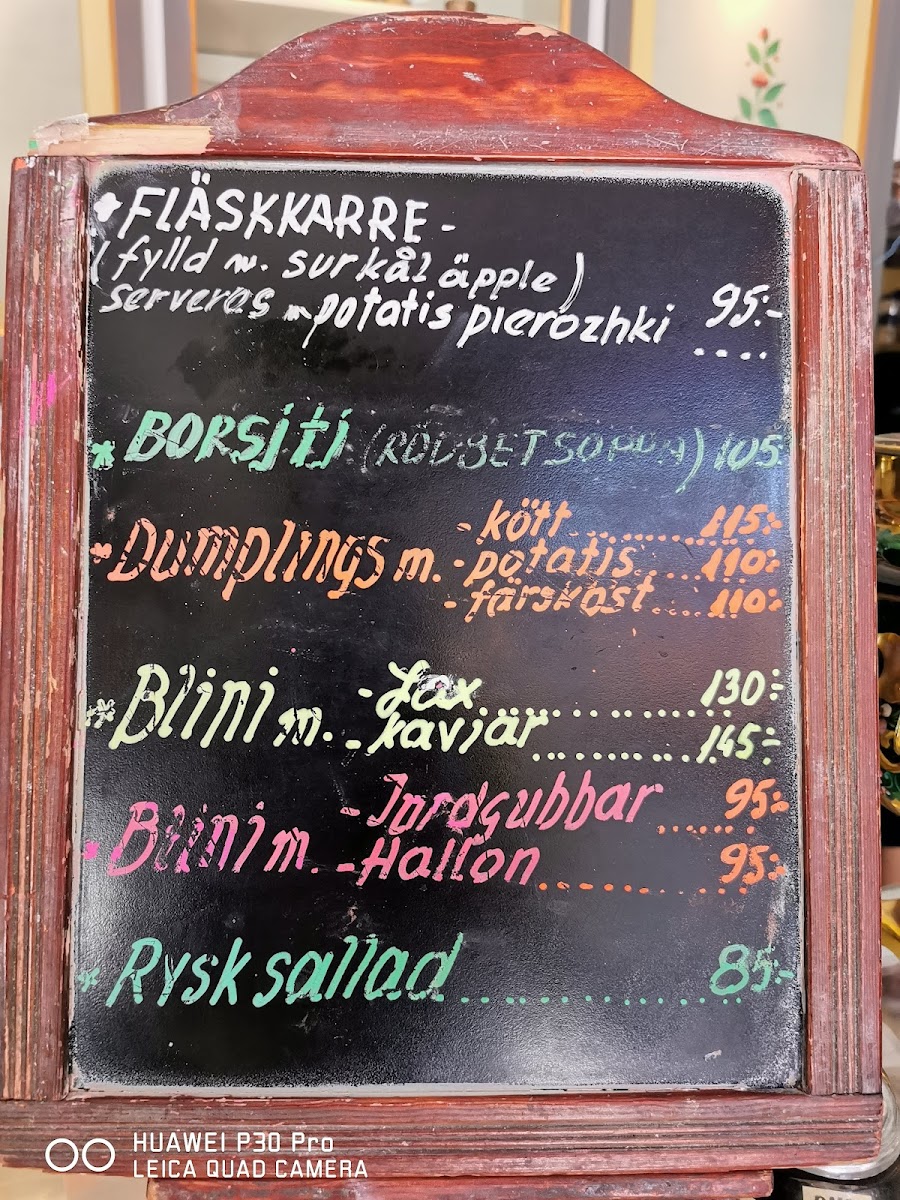 * FLÄSKKARRE -
(fylld m. surkål äpple)
serveras m potatis pierozhki 95:-
* BORSJTJ (RÖDBETSOPPA) 105
- Dumplings m. - kött ........ 115:-
- potatis ..... 110:-
- färskost .... 110:-
* Blini m. - Lax ............ 130:-
- kaviar ........... 145:-
* Blini m. - Jordgubbar ...... 95:-
- Hallon ............ 95:-
* Rysk sallad ................ 85:-
HUAWEI P30 Pro
LEICA QUAD CAMERA